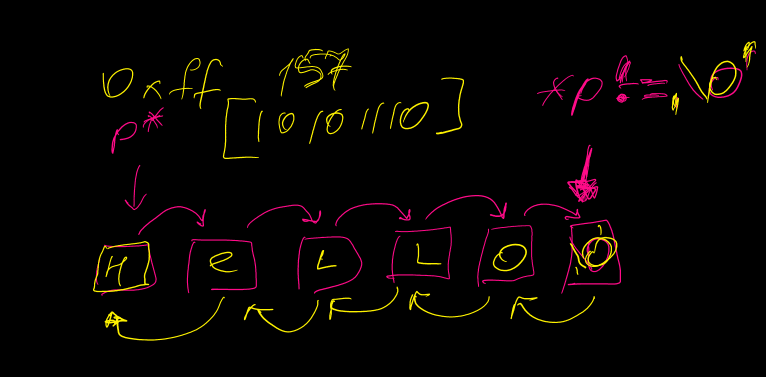 0xff 157
p* [10101110] *p != '\0'
H e L L O \0